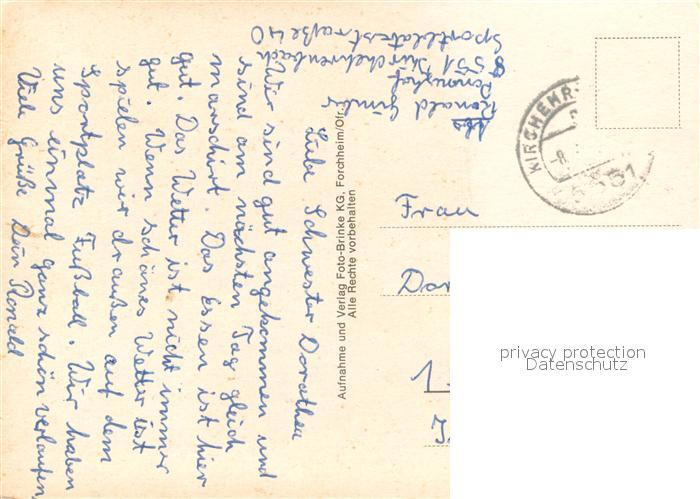 Ronald
Pennighof
8551 Kirchehrenbach
Sportplatzstraße 40
Liebe Schwester Dorothea
Wir sind gut angekommen und
sind am nächsten Tag gleich
marschirt. Das Essen ist hier
gut. Das Wetter ist nicht immer
gut. Wenn schönes Wetter ist
spielen wir draußen auf dem
Sportplatz Fußball. Wir haben
uns einmal ganz schön verlaufen
Viele Grüße Dein Ronald
Aufnahme und Verlag Foto-Brinke KG, Forchheim/Ofr.
Alle Rechte vorbehalten
KIRCHEHR
Frau
Dor
1
privacy protection
Datenschutz